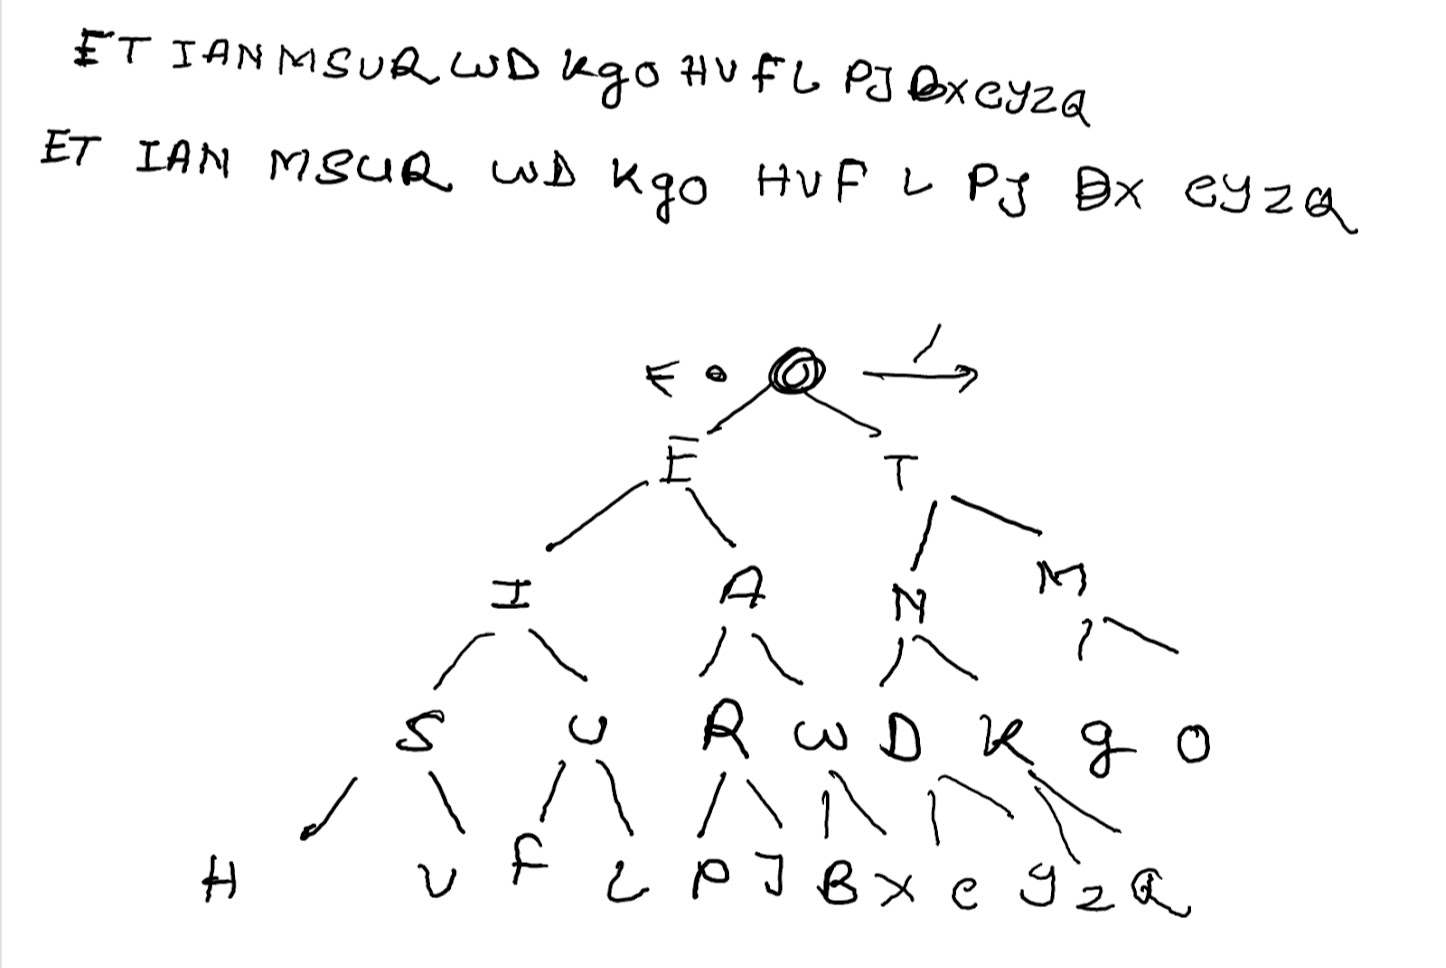 ET IANMSURWD KgO HVFL PJBXCYZQ
ET IAN MSUR WD KgO HVF L PJ BX CYZQ
E T
I A N M
S U R W D K g O
H V F L P J B X C Y Z Q